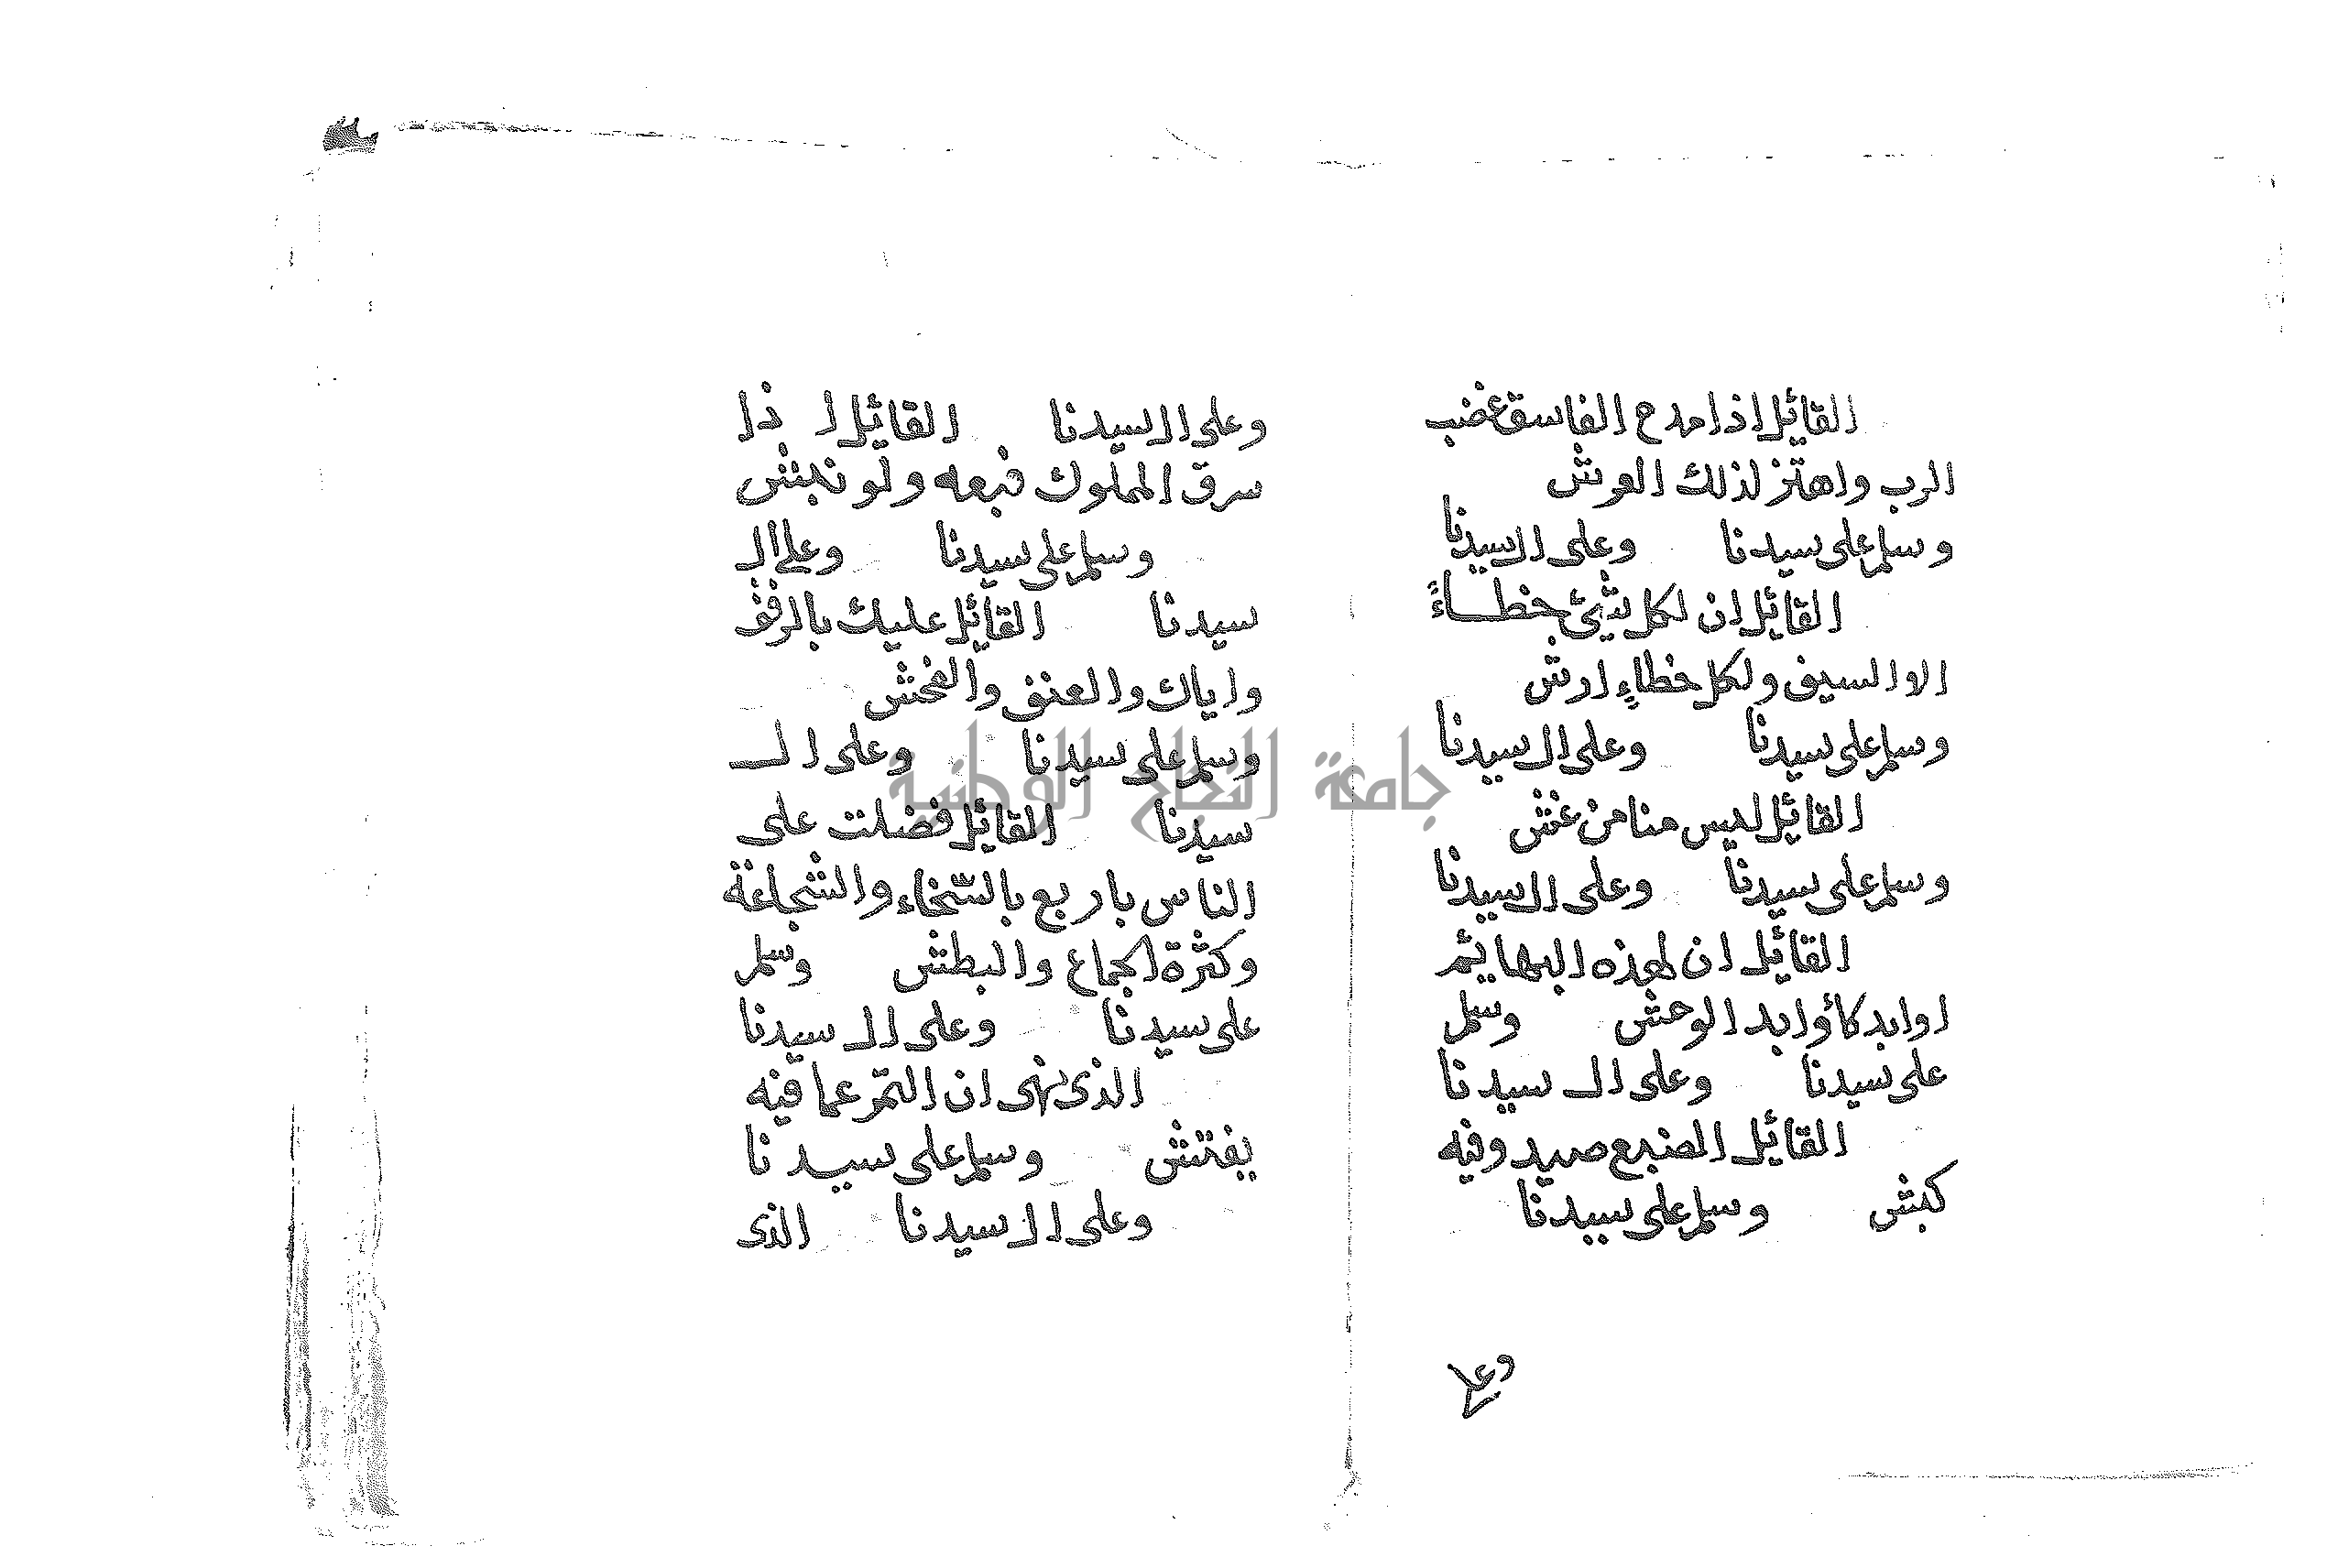 القائل اذا مدح الفاسق غضب
الرب واهتز لذلك العرش
وسلم على سيدنا وعلى ال سيدنا
القائل ان لكل شئ خطاءً
الا السيف ولكل خطاءٍ ارش
وسلم على سيدنا وعلى ال سيدنا
القائل ليس منا من غش
وسلم على سيدنا وعلى ال سيدنا
القائل ان لهذه البهائم
اوابد كأوابد الوحش وسلم
على سيدنا وعلى ال سيدنا
القائل الضبع صيد وفيه
كبش وسلم على سيدنا
وعلى
وعلى ال سيدنا القائل اذا
سرق المملوك فبعه ولو بنش
وسلم على سيدنا وعلى ال
سيدنا القائل عليك بالرفق
واياك والعنف والفحش
وسلم على سيدنا وعلى ال
سيدنا القائل فضلت على
الناس باربع بالسّخاء والشجاعة
وكثرة الجماع والبطش وسلم
على سيدنا وعلى ال سيدنا
الذى نهى ان التمر عما فيه
يفتش وسلم على سيدنا
وعلى ال سيدنا الذى
جامعة النجاح الوطنية